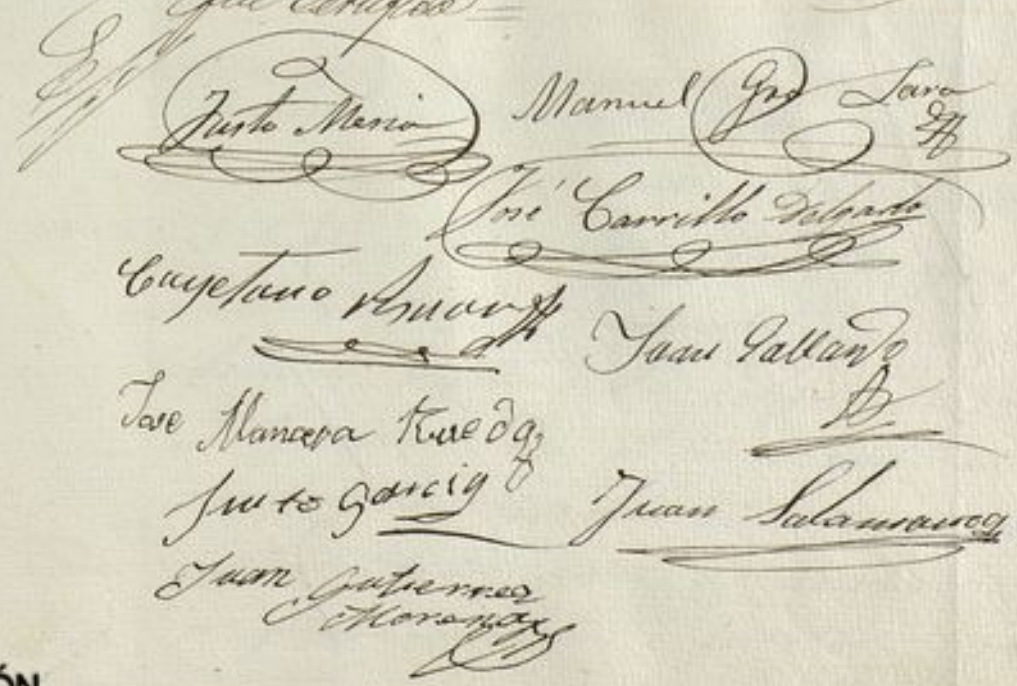 que certifico
Justo Mesia
Manuel Gro Lara
José Carrillo Delgado
Cayetano
Juan Gallardo
Jose Mancera Rueda
Justo Garcia
Juan Salamanca
Juan Gutierrez
Moreno
ÓN